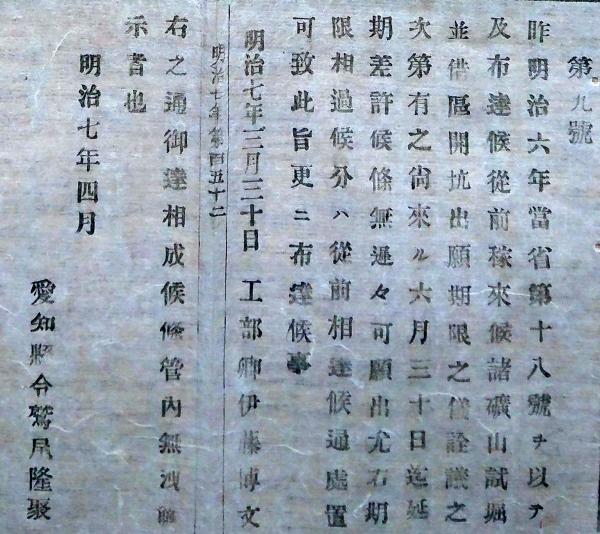 第九號
昨明治六年當省第十八號ヲ以テ
及布達候從前稼來候諸礦山試堀
並借區開坑出願期限之儀詮議之
次第有之尙來ル六月三十日迄延
期差許候條無遲々可願出尤右期
限相過候分ハ從前相達候通處置
可致此旨更ニ布達候事
明治七年三月三十日 工部卿伊藤博文
明治七年第百五十二
右之通御達相成候條管內無洩
示者也
明治七年四月
愛知縣令鷲尾隆聚